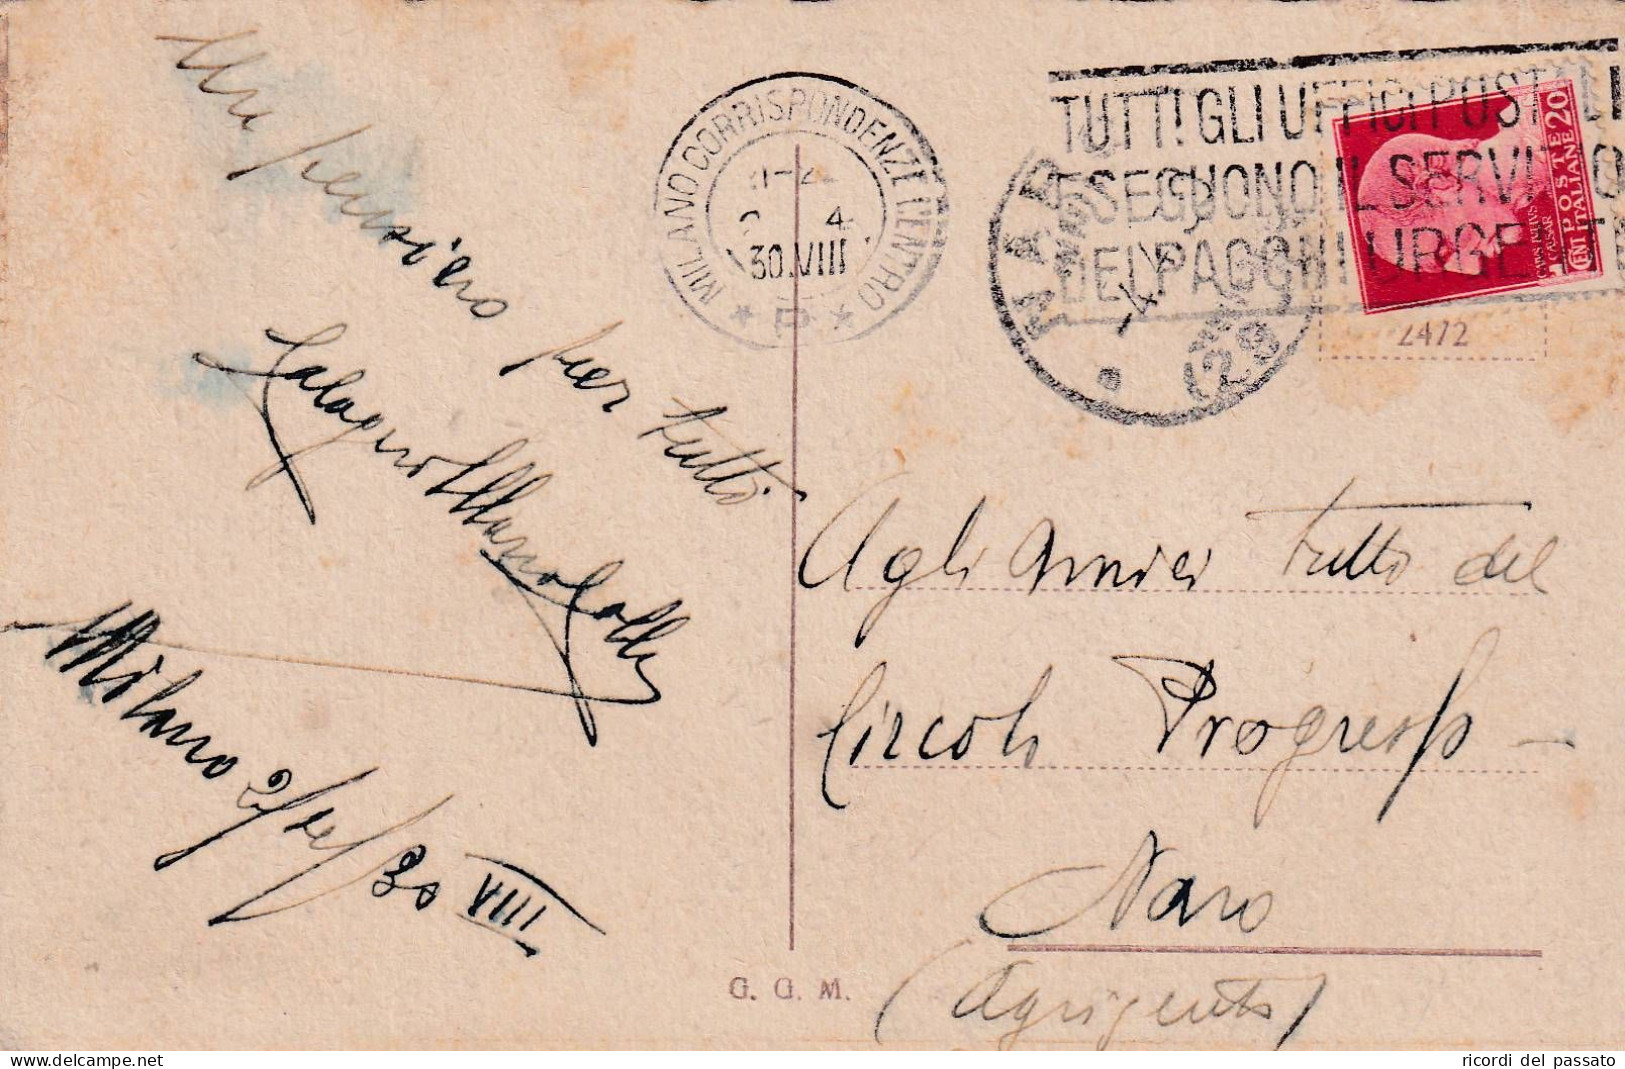 Un pensiero per tutti
Milano 2/4/30 VIII
MILANO CORRISPONDENZE CENTRO
4
30.VIII
P
TUTTI GLI UFFICI POSTALI
ESEGUONO IL SERVIZIO
DEI PACCHI URGENTI
NARO
POSTE
ITALIANE
CENT 20
CAIVS IVLIVS
CAESAR
2472
Agli Amici tutti del
Circolo Progresso
Naro
(Agrigento)
G. G. M.
delcampe.net
ricordi del passato